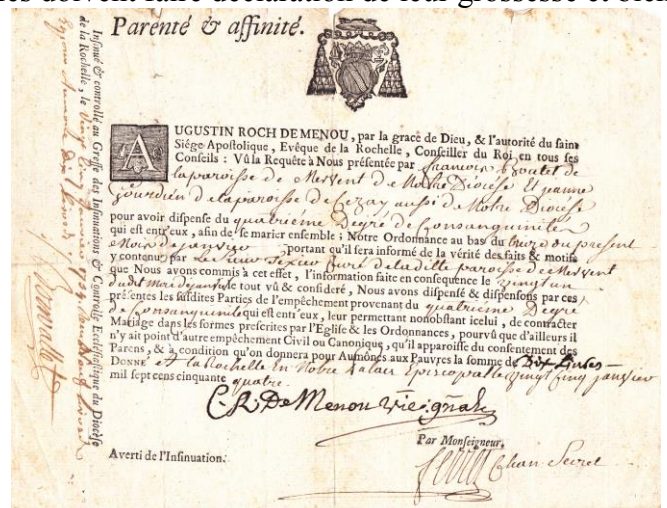 es doivent faire déclaration de leur grossesse et
Parenté & affinité.
AUGUSTIN ROCH DE MENOU, par la grace de Dieu, & l'autorité du saint
Siége Apostolique, Evêque de la Rochelle, Conseiller du Roi en tous ses
Conseils : Vû la Requête à Nous présentée par françois
la paroisse de Mervent de Notre Diocése Et jeanne
jourdien de la paroisse de Cezay aussi de Notre Diocése
pour avoir dispense du quatrieme Degré de Consanguinité
qui est entr'eux, afin de se marier ensemble ; Notre Ordonnance au bas du present
Mois de janvier portant qu'il sera informé de la vérité des faits & motifs
y contenus, par Curé de la ditte paroisse de Mervent
que Nous avons commis à cet effet, l'information faite en conséquence le vingt un
dudit Mois de janvier le tout vû & considéré, Nous avons dispensé & dispensons par ces
présentes les susdites Parties de l'empêchement provenant du quatrieme Degré
de Consanguinité qui est entr'eux, leur permettant nonobstant icelui, de contracter
Mariage dans les formes prescrites par l'Eglise & les Ordonnances, pourvû que d'ailleurs il
n'y ait point d'autre empêchement Civil ou Canonique, qu'il apparoisse du consentement des
Parens, & à condition qu'on donnera pour Aumônes aux Pauvres la somme de Dix Livres
DONNÉ et la Rochelle En Notre Palais Episcopal le vingt cinq janvier
mil sept cens cinquante quatre.
C. R. De Menou vic. gnal
Par Monseigneur,
Averti de l'Insinuation.
Insinué & controllé au Greffe des Insinuations & Controlle Ecclésiastique du Diocèse
de la Rochelle, le Vingt Cinq janvier 1754